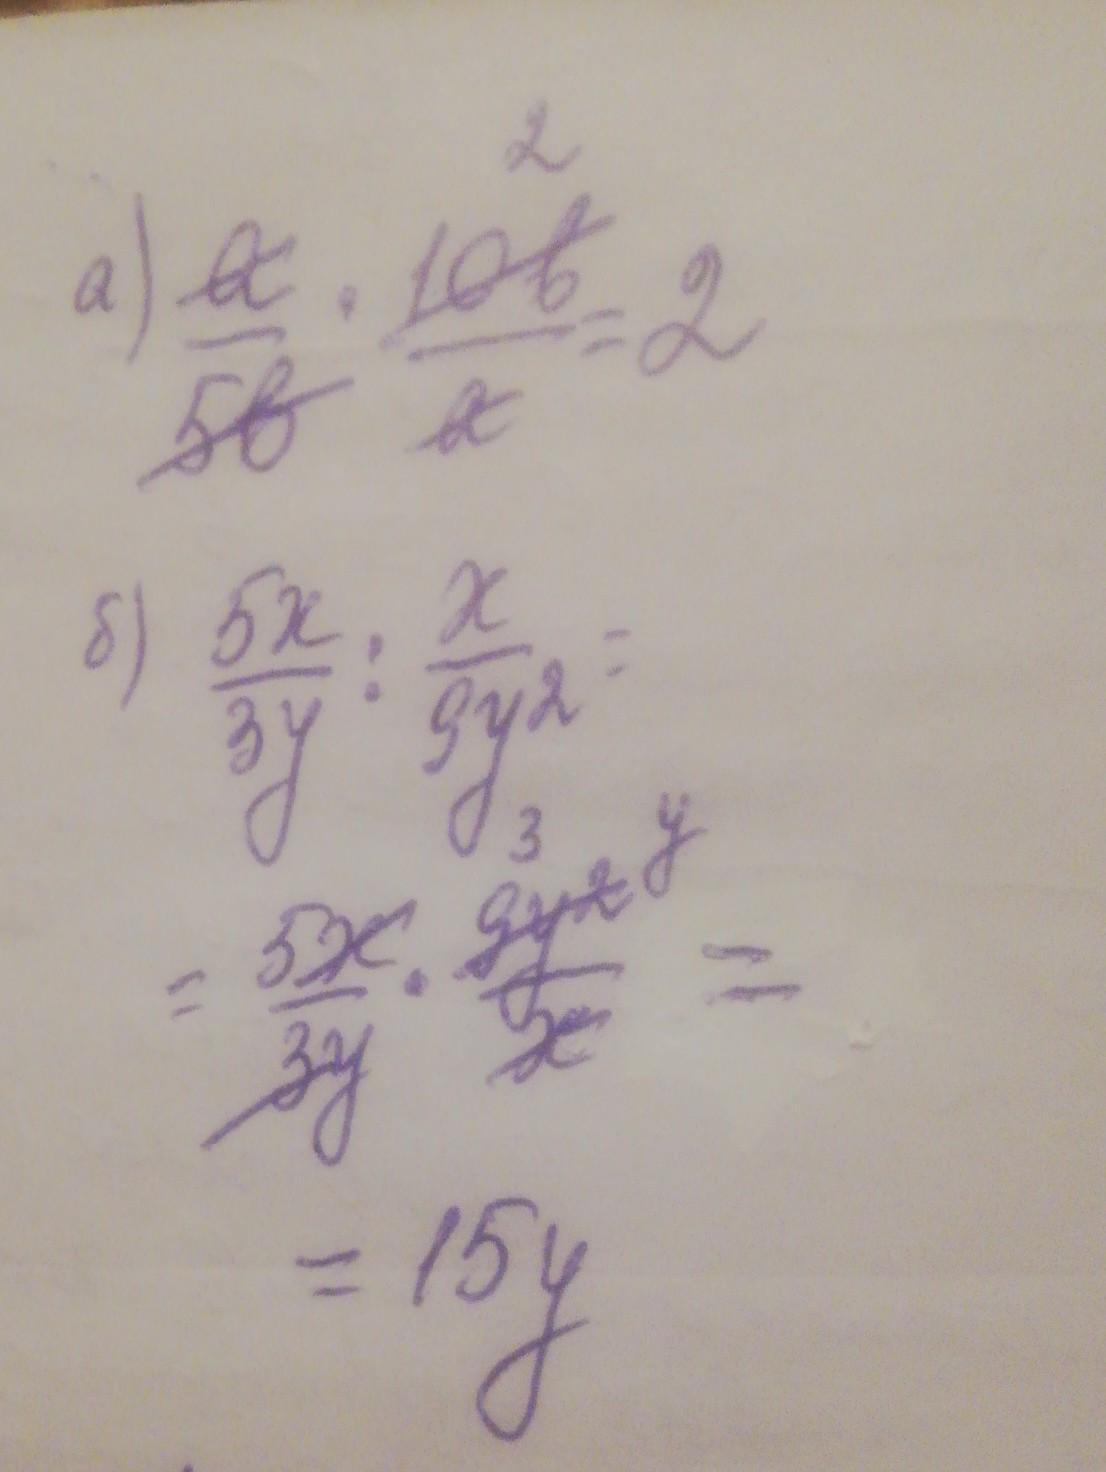 а) a/5b · 10b/a = 2
2
б) 5x/3y : x/9y² =
3 y
= 5x/3y · 9y²/x =
= 15y